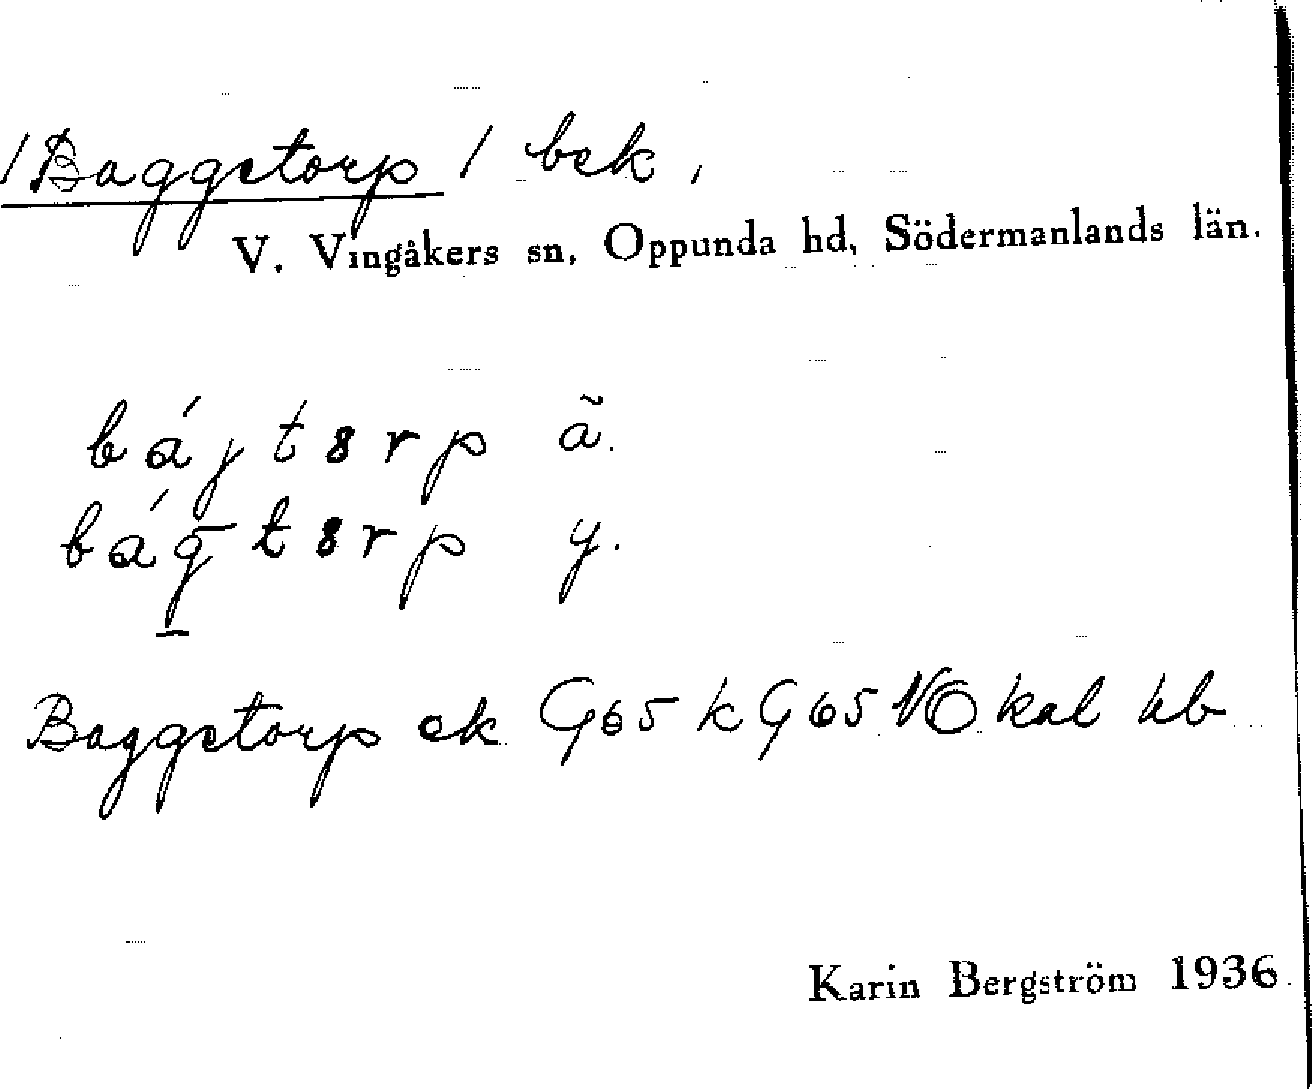 /Baggetorp/ bek,
V. Vingåkers sn, Oppunda hd, Södermanlands län.
bájtɜrp ã.
bág̅tɜrp y.
Baggetorp ek G65 kG65 NO kal hb
Karin Bergström 1936